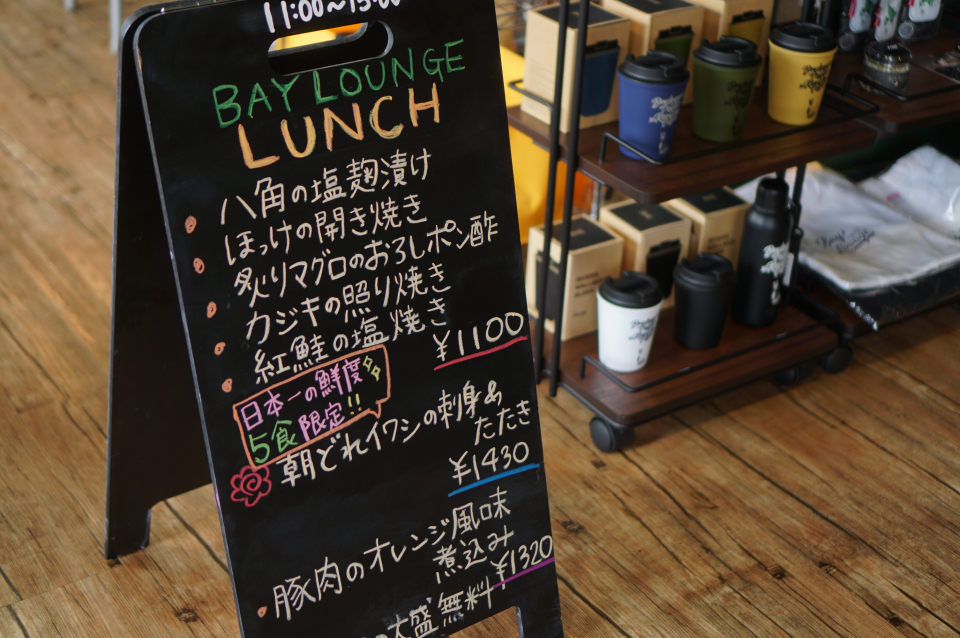 11:00~15:00
BAY LOUNGE
LUNCH
八角の塩麹漬け
ほっけの開き焼き
炙りマグロのおろしポン酢
カジキの照り焼き
紅鮭の塩焼き
¥1100
日本一の鮮度
5食限定!!
朝どれイワシの刺身&
たたき
¥1430
豚肉のオレンジ風味
煮込み
¥1320
大盛無料